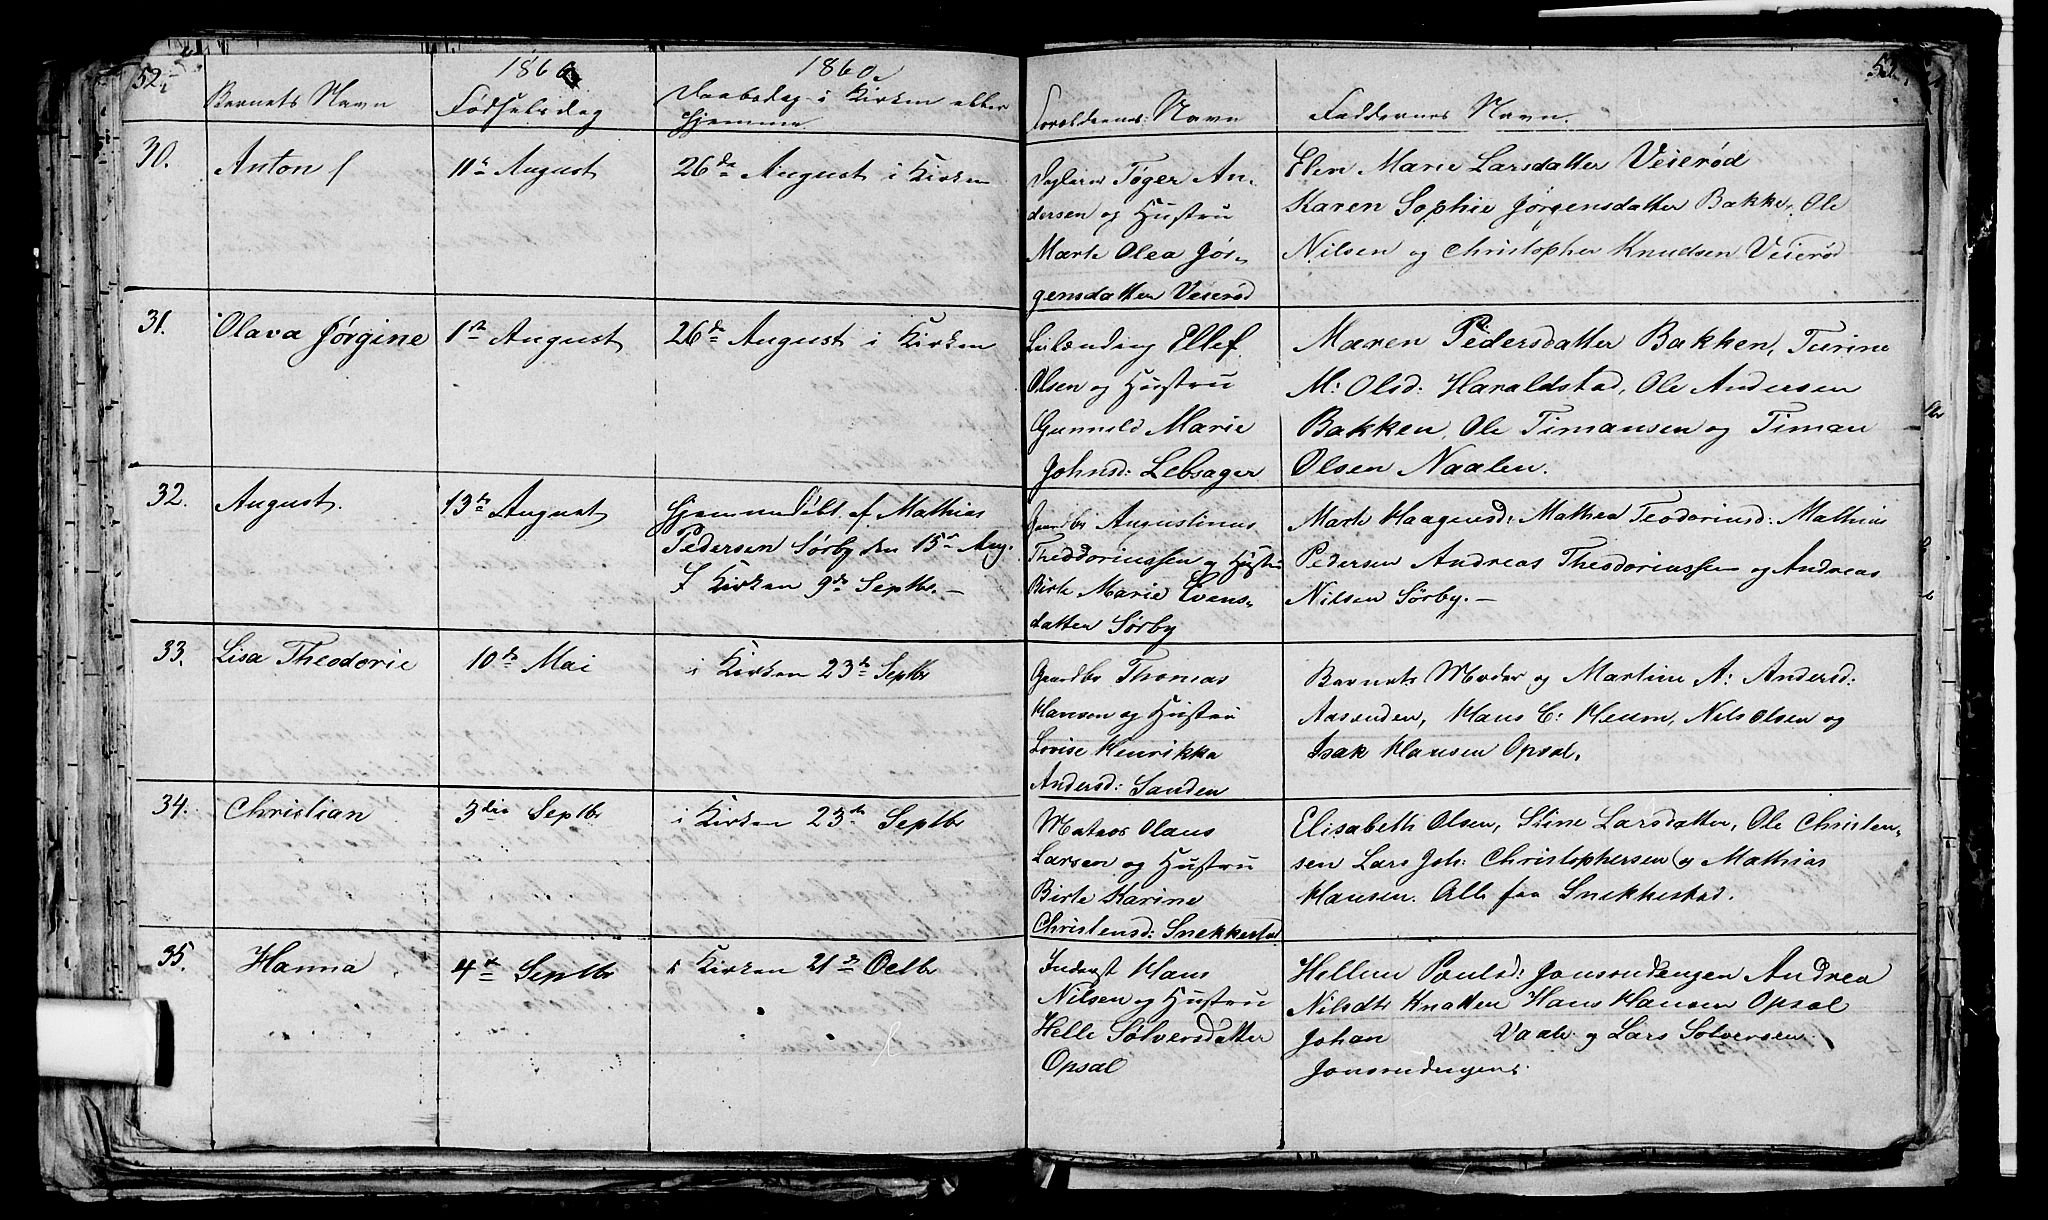 52.
1860
1860.
Barnets Navn
Fødselsdag
Daabsdag i Kirken eller
Hjemme
Forældrenes Navn
Faddernes Navn.
30.
Anton
11te August
26de August i Kirken
Tøger An-
dersen og Hustru
Marte Olea Jør-
gensdatter Veierød
Elen Marie Larsdatter Veierød
Karen Sophie Jørgensdatter Bakke, Ole
Nilsen og Christopher Knudsen Veierød
31.
Olava Jørgine
1ste August
26de August i Kirken
Leilænding Ellef
Olsen og Hustru
Gunnild Marie
Johnsd: Lebsager
Maren Pedersdatter Bakken, Turine
M: Olsd: Haraldstad, Ole Andersen
Bakken, Ole Timansen og Timan
Olsen Naalen.
32.
August.
13de August
Hjemmedøbt af Mathias
Pedersen Sørby den 15de Aug.
I Kirken 9de Septbr. —
Gaardbr Augustinus
Theodoriussen og Hustru
Birte Marie Evens-
datter Sørby
Marte Haagensd: Mathea Teodoriusd: Mathias
Pedersen Andreas Theodoriussen og Andreas
Nilsen Sørby. —
33.
Lisa Theodorie
10de Mai
i Kirken 23de Septbr
Gaardbr Thomas
Hansen og Hustru
Lovise Henrikka
Andersd: Sanden
Barnets Moder og Martine A: Andersd:
Aasrunden, Hans C: Heum, Nils Olsen og
Isak Hansen Opsal.
34.
Christian
3die Septbr
i Kirken 23de Septbr
Matros Olaus
Larsen og Hustru
Birte Karine
Christensd: Snekkestad
Elisabeth Olsen, Stine Larsdatter, Ole Christen-
sen Lars Joh: Christophersen og Mathias
Hansen. Alle fra Snekkestad.
35.
Hanna
4de Septbr
i Kirken 21de Octbr
Inderst Hans
Nilsen og Hustru
Helle Sølversdatter
Opsal
Hellene Poulsd: Jonsrudengen Andrea
Nilsdtr Knatten Hans Hansen Opsal
Johan Vaale og Lars Solversen
Jonsrudengene.